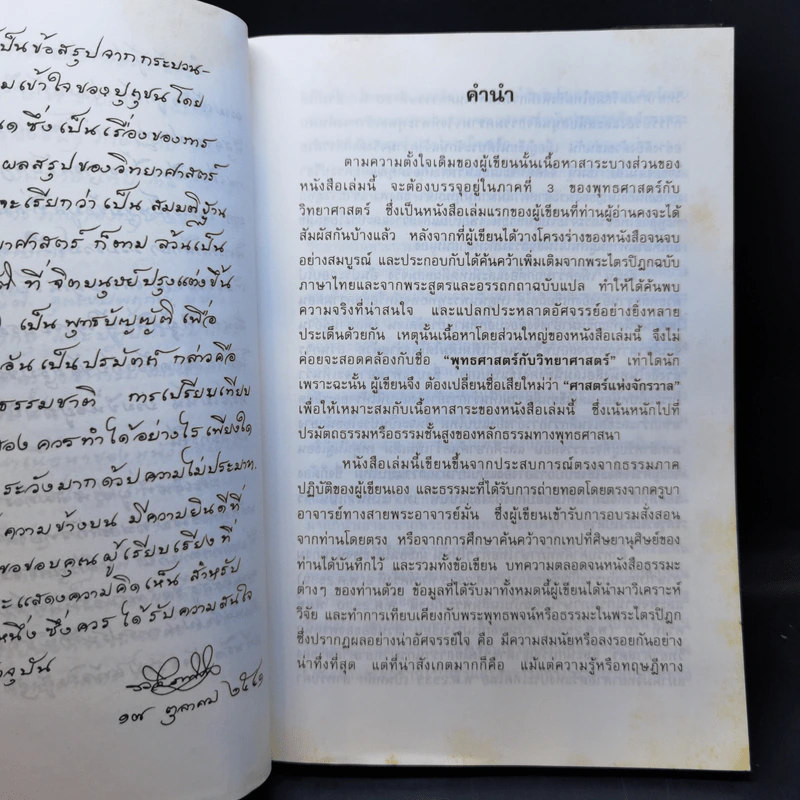 เป็นข้อสรุปจากกระบวน-
มเข้าใจของปุถุชน โดย
ซึ่งเป็นเรื่องของการ
ผลสรุปของวิทยาศาสตร์
จะเรียกว่าเป็น สมมติฐาน
าศาสตร์ ก็ตาม ล้วนเป็น
ที่จิตมนุษย์ปรุงแต่งขึ้น
เป็น พุทธบัญญัติ เพื่อ
อันเป็นปรมัตถ์ กล่าวคือ
ธรรมชาติ การเปรียบเทียบ
ของ ควรทำได้อย่างไร เพียงใด
ระวังมาก ด้วยความไม่ประมาท.
ความข้างบน มีความยินดีที่
ขอขอบคุณ ผู้เรียบเรียง ที่
ะแสดงความคิดเห็น สำหรับ
หนึ่ง ซึ่งควรได้รับความสนใจ
จุบัน
๑๗ ตุลาคม ๒๕๔๑
คำนำ
ตามความตั้งใจเดิมของผู้เขียนนั้นเนื้อหาสาระบางส่วนของ
หนังสือเล่มนี้ จะต้องบรรจุอยู่ในภาคที่ 3 ของพุทธศาสตร์กับ
วิทยาศาสตร์ ซึ่งเป็นหนังสือเล่มแรกของผู้เขียนที่ท่านผู้อ่านคงจะได้
สัมผัสกันบ้างแล้ว หลังจากที่ผู้เขียนได้วางโครงร่างของหนังสือจนจบ
อย่างสมบูรณ์ และประกอบกับได้ค้นคว้าเพิ่มเติมจากพระไตรปิฎกฉบับ
ภาษาไทยและจากพระสูตรและอรรถกถาฉบับแปล ทำให้ได้ค้นพบ
ความจริงที่น่าสนใจ และแปลกประหลาดอัศจรรย์อย่างยิ่งหลาย
ประเด็นด้วยกัน เหตุนั้นเนื้อหาโดยส่วนใหญ่ของหนังสือเล่มนี้ จึงไม่
ค่อยจะสอดคล้องกับชื่อ "พุทธศาสตร์กับวิทยาศาสตร์" เท่าใดนัก
เพราะฉะนั้น ผู้เขียนจึง ต้องเปลี่ยนชื่อเสียใหม่ว่า "ศาสตร์แห่งจักรวาล"
เพื่อให้เหมาะสมกับเนื้อหาสาระของหนังสือเล่มนี้ ซึ่งเน้นหนักไปที่
ปรมัตถธรรมหรือธรรมชั้นสูงของหลักธรรมทางพุทธศาสนา
หนังสือเล่มนี้เขียนขึ้นจากประสบการณ์ตรงจากธรรมภาค
ปฏิบัติของผู้เขียนเอง และธรรมะที่ได้รับการถ่ายทอดโดยตรงจากครูบา
อาจารย์ทางสายพระอาจารย์มั่น ซึ่งผู้เขียนเข้ารับการอบรมสั่งสอน
จากท่านโดยตรง หรือจากการศึกษาค้นคว้าจากเทปที่ศิษยานุศิษย์ของ
ท่านได้บันทึกไว้ และรวมทั้งข้อเขียน บทความตลอดจนหนังสือธรรมะ
ต่างๆ ของท่านด้วย ข้อมูลที่ได้รับมาทั้งหมดนี้ผู้เขียนได้นำมาวิเคราะห์
วิจัย และทำการเทียบเคียงกับพระพุทธพจน์หรือธรรมะในพระไตรปิฎก
ซึ่งปรากฏผลอย่างน่าอัศจรรย์ใจ คือ มีความสมนัยหรือลงรอยกันอย่าง
น่าทึ่งที่สุด แต่ที่น่าสังเกตมากก็คือ แม้แต่ความรู้หรือทฤษฎีทาง